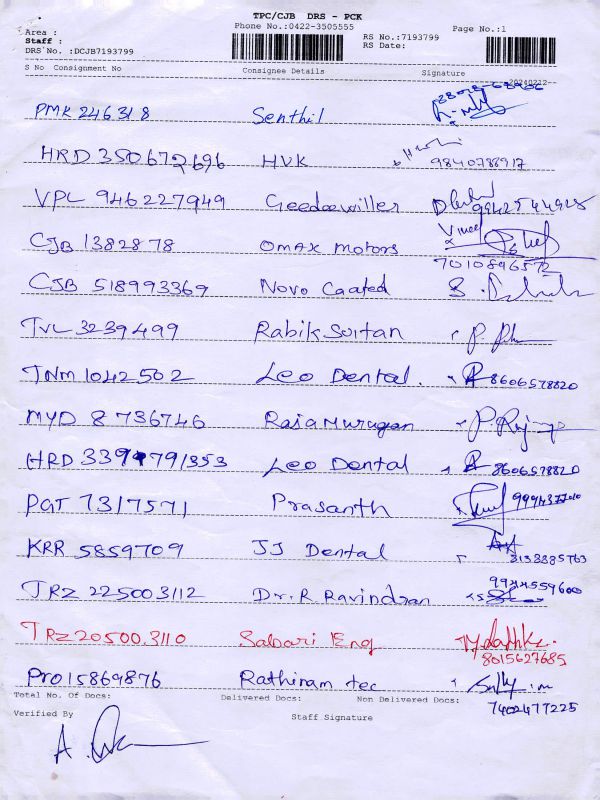 TPC/CJB DRS - PCK
Phone No.:0422-3505555
Area :
Staff :
DRS No. :DCJB7193799
RS No.:7193799
RS Date:
Page No.:1
S No Consignment No Consignee Details Signature
20240212-
PMK 246318 Senthil
HRD 350672696 HVK 9840788917
VPL 946227949 Geedeewiller 9942544925
CJB 1382878 OMAX Motors Vineet
7010896572
CJB 518993369 Novo Coated
TVL 3239499 Rabik Sultan
TNM 1042502 Leo Dental. 8606578820
MYD 8736746 Rajamurugan
HRD 339479/353 Leo Dental 8606578820
PGT 7317571 Prasanth
KRR 5859709 JJ Dental
3138885763
TRZ 225003112 Dr. R. Ravindran
TRZ 205003110 Sabari Eng
8015627685
Pro 15869876 Rathinam tec
7402477225
Total No. Of Docs: Delivered Docs: Non Delivered Docs:
Verified By Staff Signature